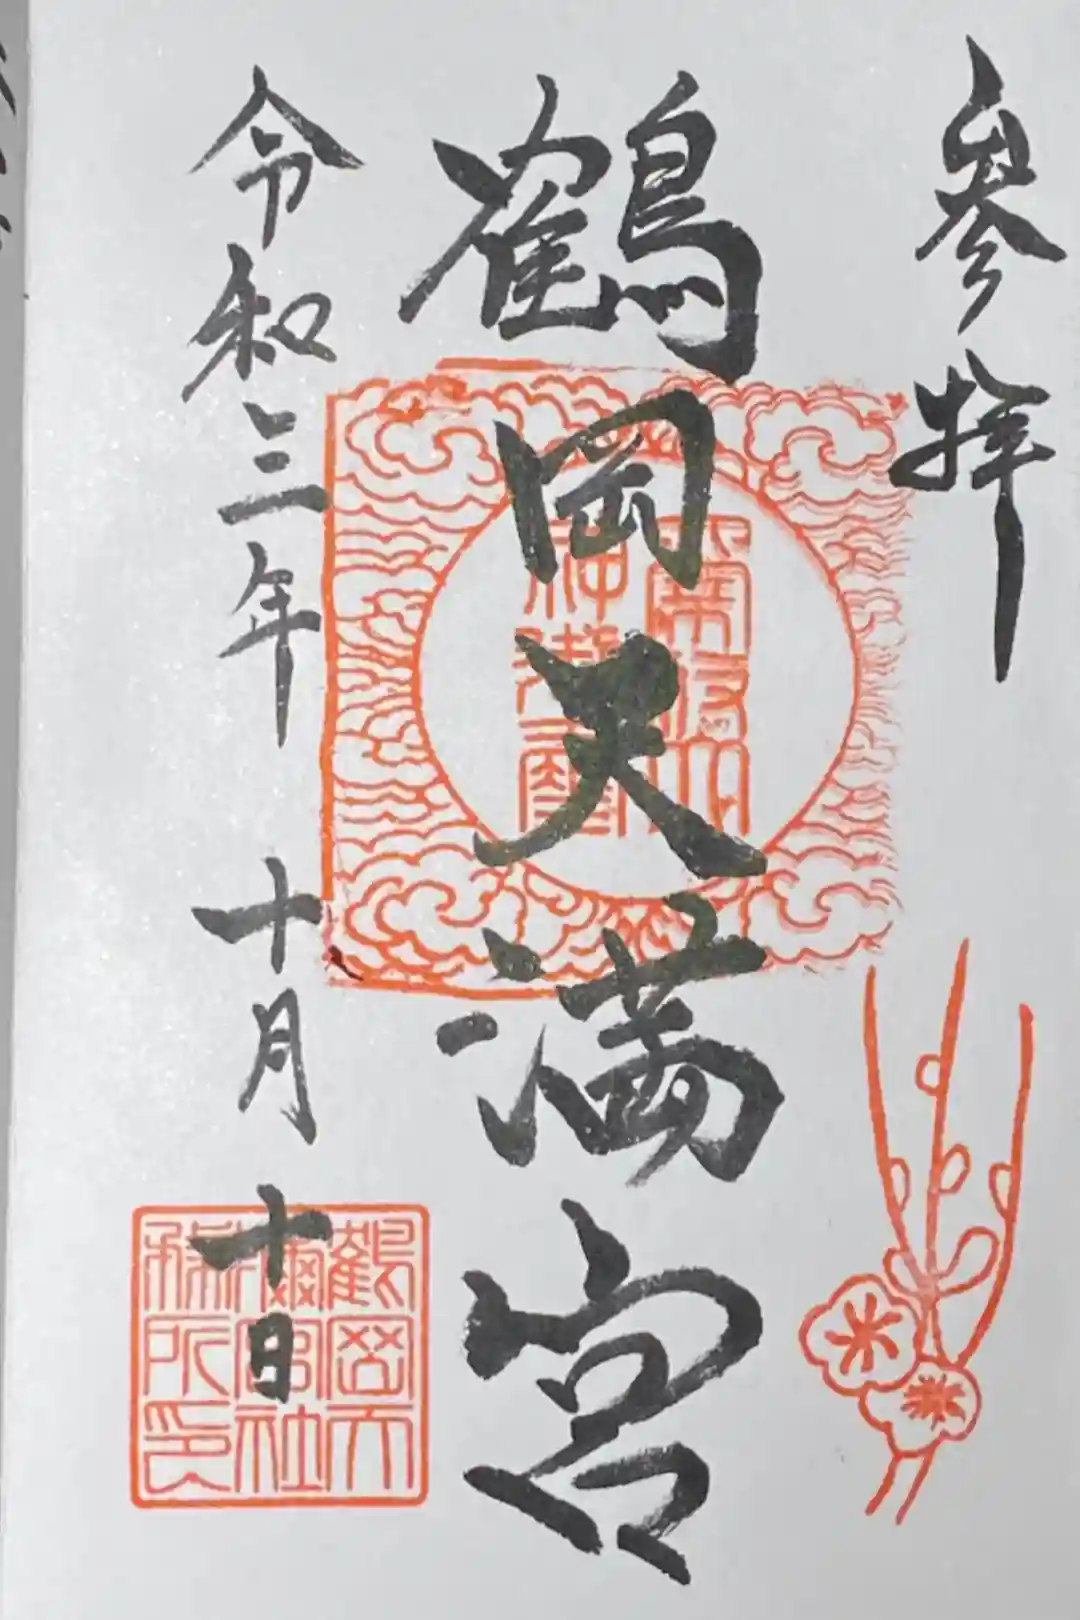 参拝
鶴岡天満宮
令和三年十月十日
鶴岡天
満宮社
務所印